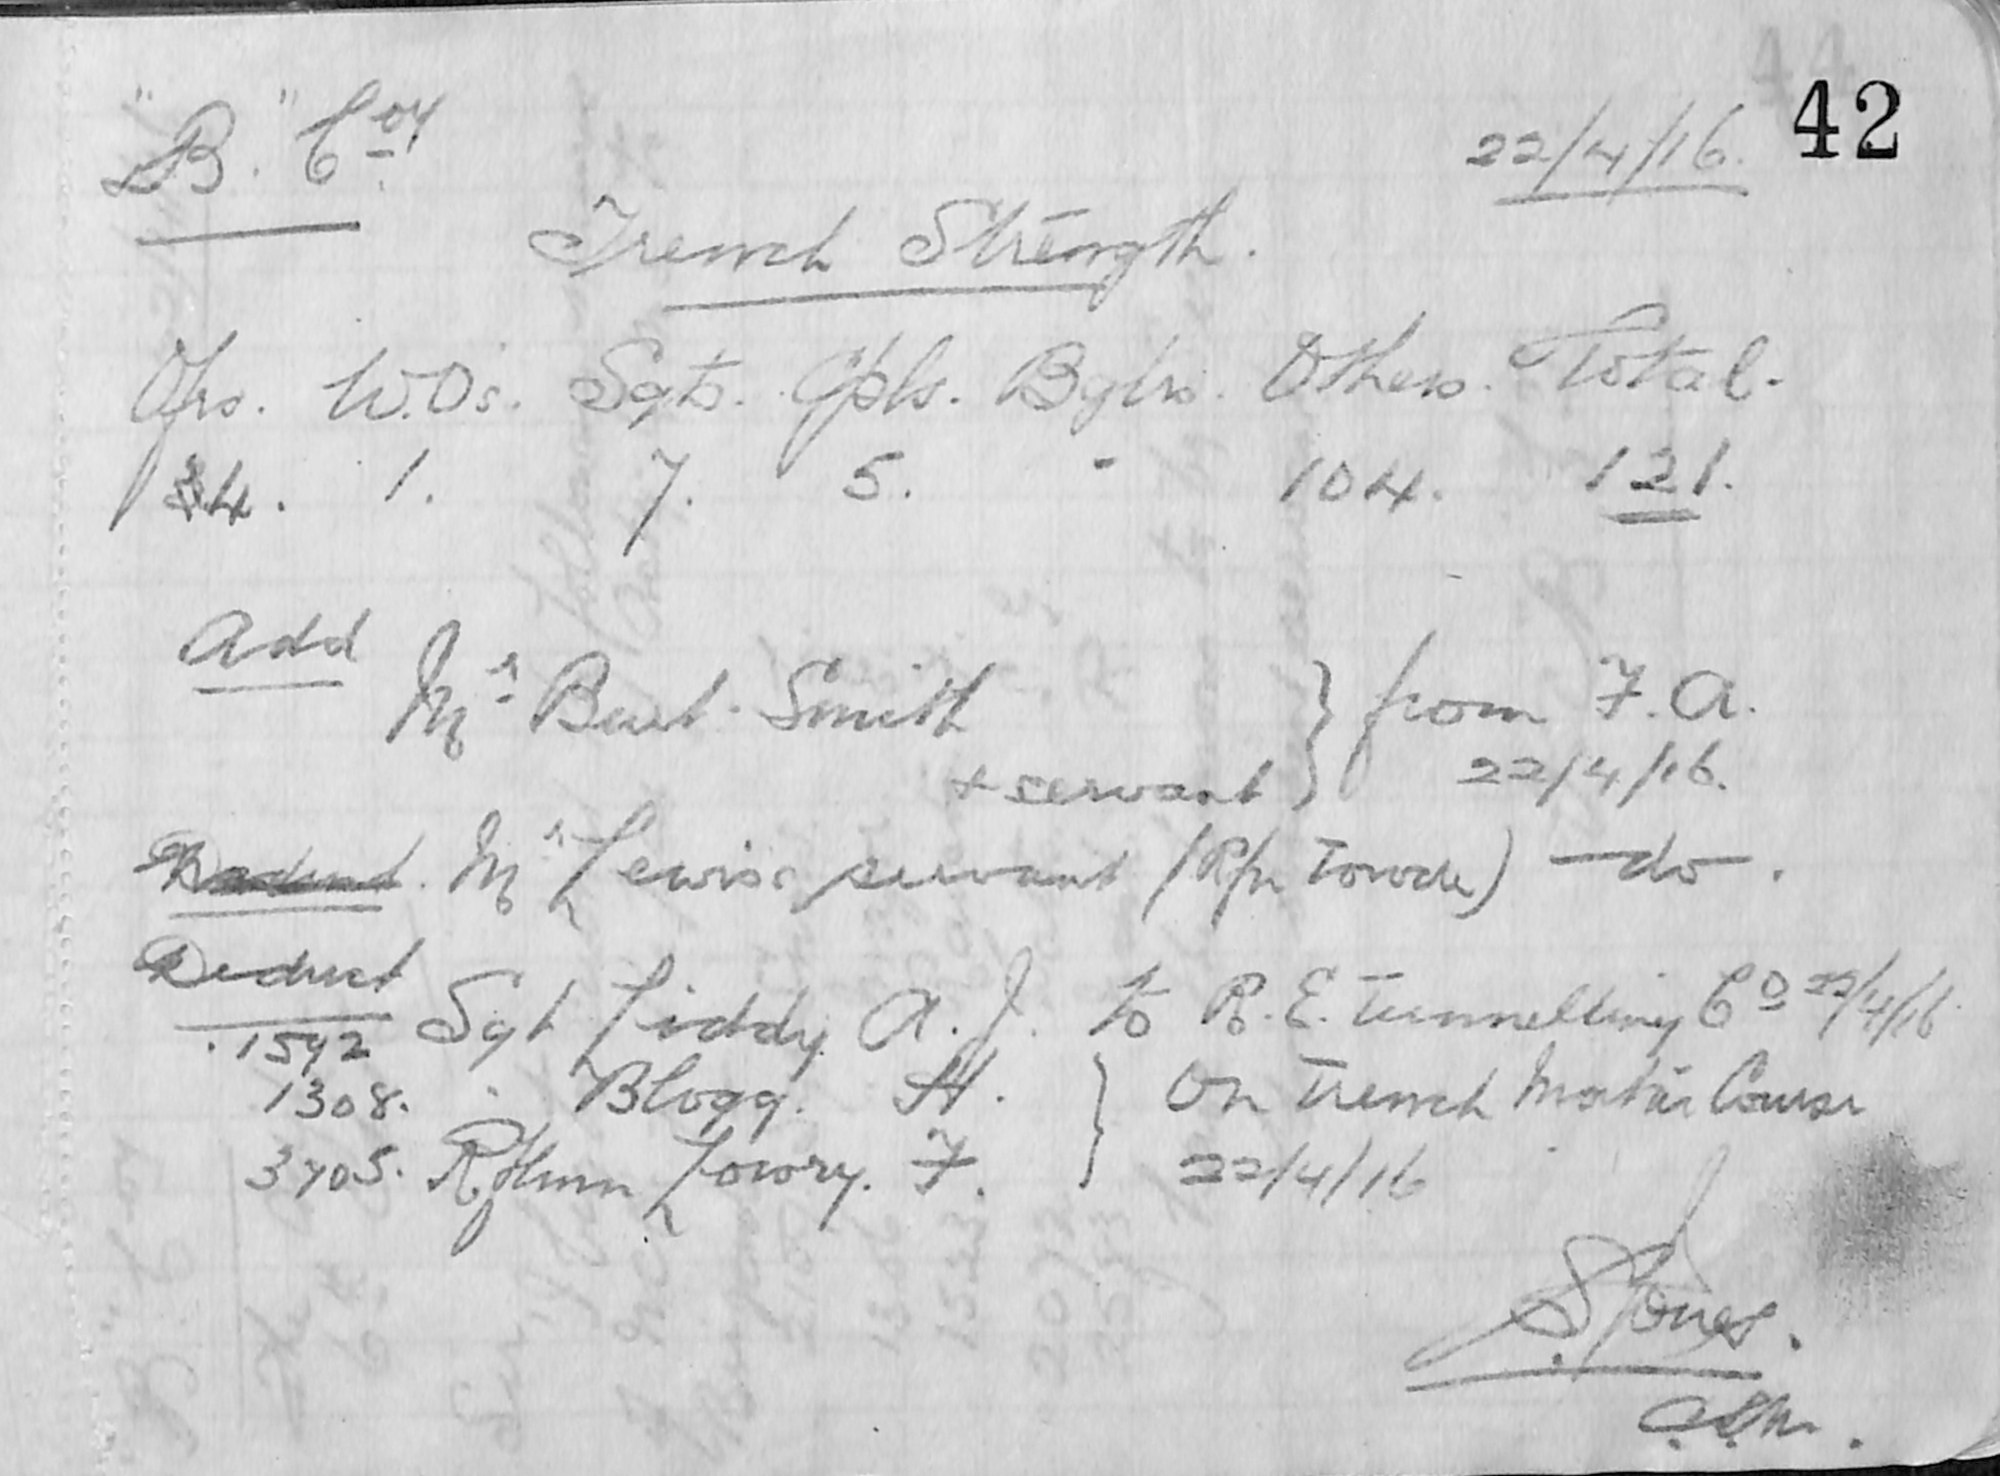 42
"B" Coy 22/4/16.
Trench Strength.
Ofrs. W.Os. Sgts. Cpls. Bglrs. Others. Total.
4. 1. 7. 5. - 104. 121.
Add
Mr Burt-Smith } from F.A.
+ servant } 22/4/16.
Mr Lewis's servant (Rfn Towse) —do—.
Deduct
1592 Sgt Liddy A.J. to R.E. Tunnelling Co 22/4/16
1308. " Blogg. H. } On Trench Mortar Course
3705. Rflmn Lowry. F. } 22/4/16
S Jones.
C.S.M.